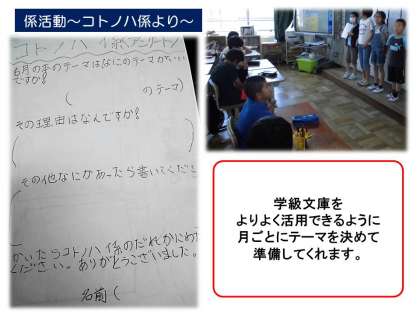 係活動～コトノハ係より～
コトノハ係アンケート
6月の本のテーマはなにのテーマがいい
ですか?
( のテーマ)
その理由はなんですか?
( )
その他なにかあったら書いてくださ
かいたらコトノハ係のだれかにわた
ください。ありがとうございました。
名前(
学級文庫を
よりよく活用できるように
月ごとにテーマを決めて
準備してくれます。